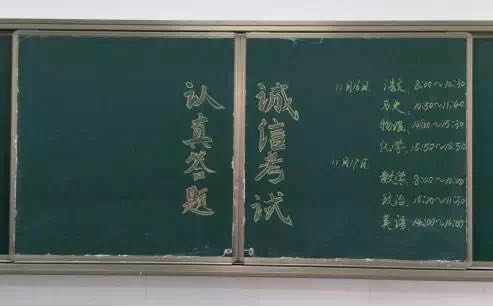 认真答题
诚信考试
11月16日 语文: 8:00~10:30
历史: 10:50~11:40
物理: 14:00~15:30
化学: 15:50~16:50
11月17日
数学: 8:00~10:00
政治: 10:20~11:30
英语: 14:00~16:00